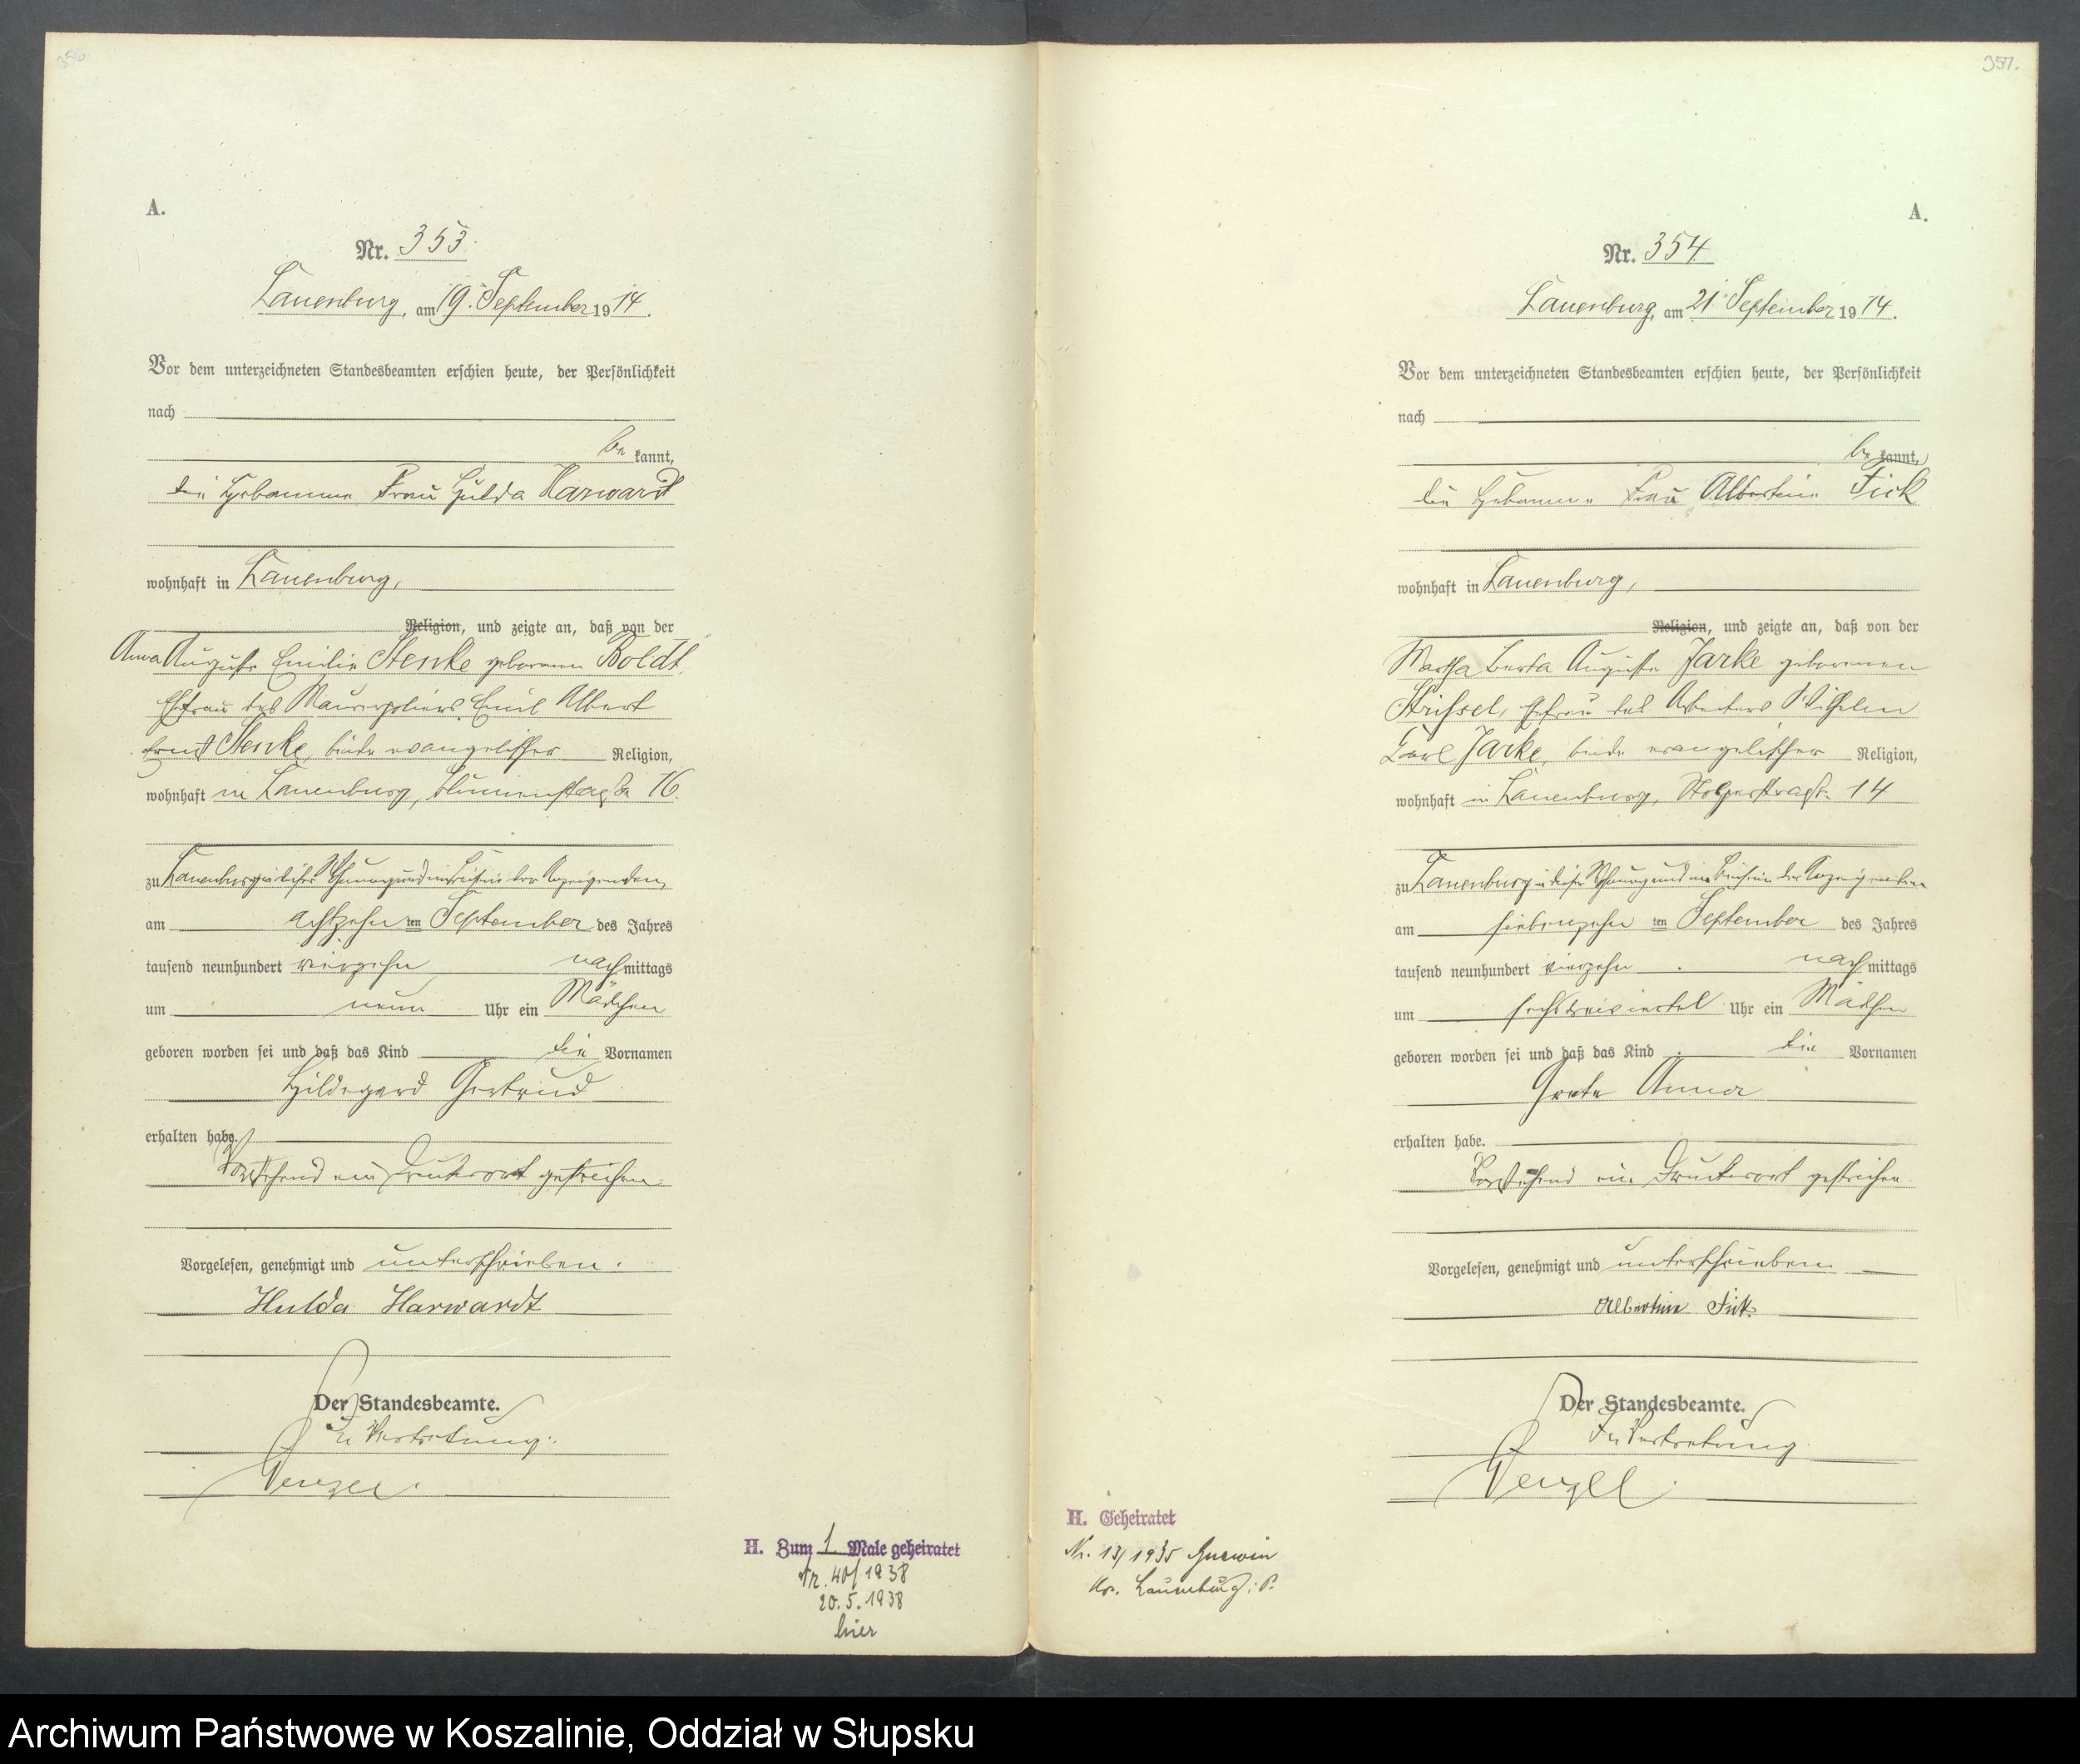 356
A.
Nr. 353.
Lauenburg, am 19. September 1914.
Vor dem unterzeichneten Standesbeamten erschien heute, der Persönlichkeit
nach
be kannt,
die Hebamme Frau Hulda Harwardt
wohnhaft in Lauenburg,
Religion, und zeigte an, daß von der
Anna Auguste Emilie Stenke geborenen Boldt
Ehefrau des Maurerpoliers Emil Albert
Ernst Stenke, beide evangelischer Religion,
wohnhaft in Lauenburg, Blumenstraße 16.
zu Lauenburg in dieser Wohnung und im Beisein der Anzeigenden,
am achtzehn ten September des Jahres
tausend neunhundert vierzehn nach mittags
um neun Uhr ein Mädchen
geboren worden sei und daß das Kind die Vornamen
Hildegard Gertrud
erhalten habe.
Vorstehend ein Druckwort gestrichen.
Vorgelesen, genehmigt und unterschrieben.
Hulda Harwardt
Der Standesbeamte.
In Vertretung.
Wenzel.
H. Zum 1. Male geheiratet
Nr. 40/1938
20.5.1938
hier
357.
A.
Nr. 354
Lauenburg, am 21. September 1914.
Vor dem unterzeichneten Standesbeamten erschien heute, der Persönlichkeit
nach
be kannt,
die Hebamme Frau Albertine Fick
wohnhaft in Lauenburg,
Religion, und zeigte an, daß von der
Martha Berta Auguste Jarke geborenen
Ehefrau des Arbeiters Wilhelm
Carl Jarke, beide evangelischer Religion,
wohnhaft in Lauenburg, Stolperstraße 14
zu Lauenburg in dieser Wohnung und im Beisein der Anzeigenden
am siebenzehn ten September des Jahres
tausend neunhundert vierzehn nach mittags
um sechsdreiviertel Uhr ein Mädchen
geboren worden sei und daß das Kind die Vornamen
Grete Anna
erhalten habe.
Vorstehend ein Druckwort gestrichen.
Vorgelesen, genehmigt und unterschrieben
Albertine Fick.
Der Standesbeamte.
In Vertretung
Wenzel.
H. Geheiratet
Nr. 13/1935
Kr. Lauenburg i. P.
Archiwum Państwowe w Koszalinie, Oddział w Słupsku